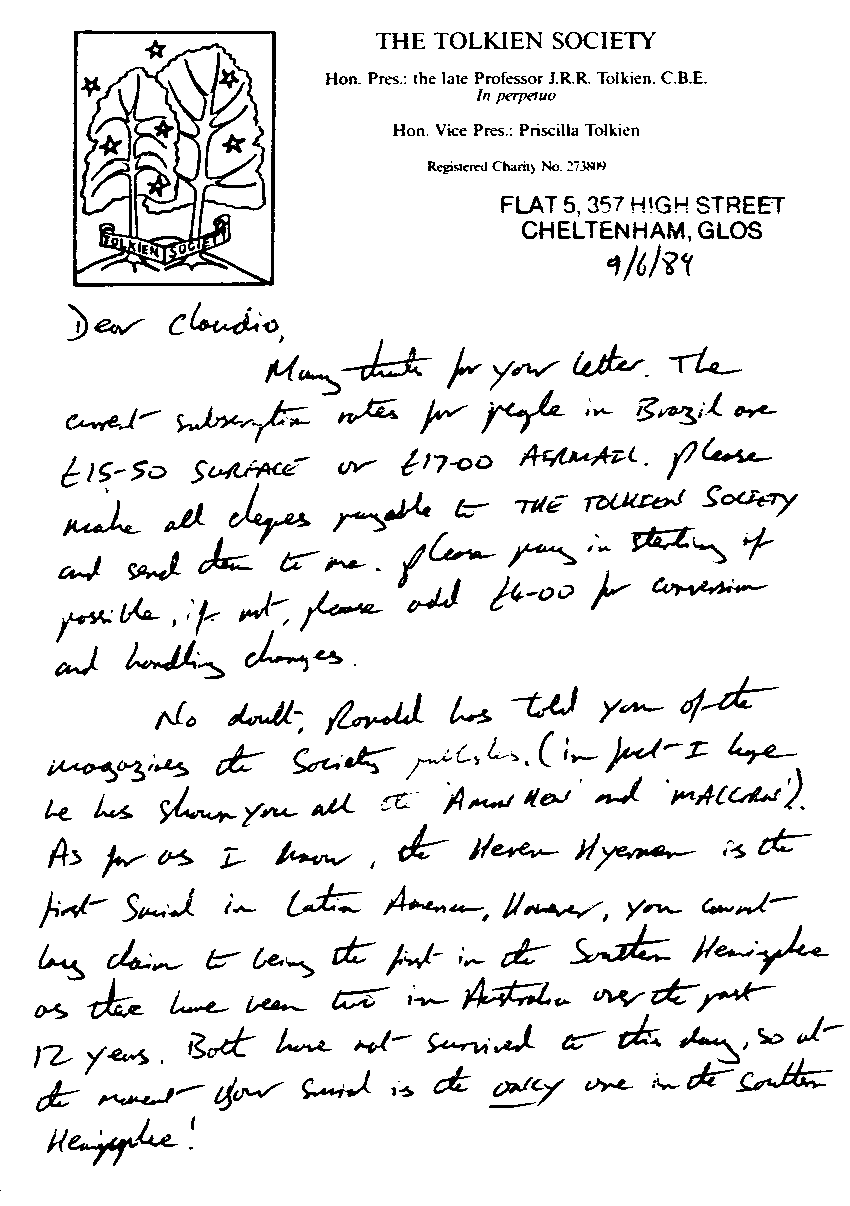 THE TOLKIEN SOCIETY
Hon. Pres.: the late Professor J.R.R. Tolkien. C.B.E.
In perpetuo
Hon. Vice Pres.: Priscilla Tolkien
Registered Charity No. 273809
TOLKIEN SOCIETY
FLAT 5, 357 HIGH STREET
CHELTENHAM, GLOS
9/6/89
Dear Claudio,
Many thanks for your letter. The
current subscription rates for people in Brazil are
£15-50 SURFACE or £17-00 AIRMAIL. Please
make all cheques payable to THE TOLKIEN SOCIETY
and send them to me. Please pay in sterling if
possible, if not, please add £6-00 for conversion
and handling charges.
No doubt, Ronald has told you of the
magazines the Society publishes. (in fact I hope
he has shown you all the 'AMON HEN' and 'MALLORN').
As far as I know, the Heren Hyarmen is the
first Smial in Latin America, However, you cannot
lay claim to being the first in the Southern Hemisphere
as there have been two in Australia over the past
12 years. Both have not survived to this day, so at
the moment your Smial is the only one in the Southern
Hemisphere!